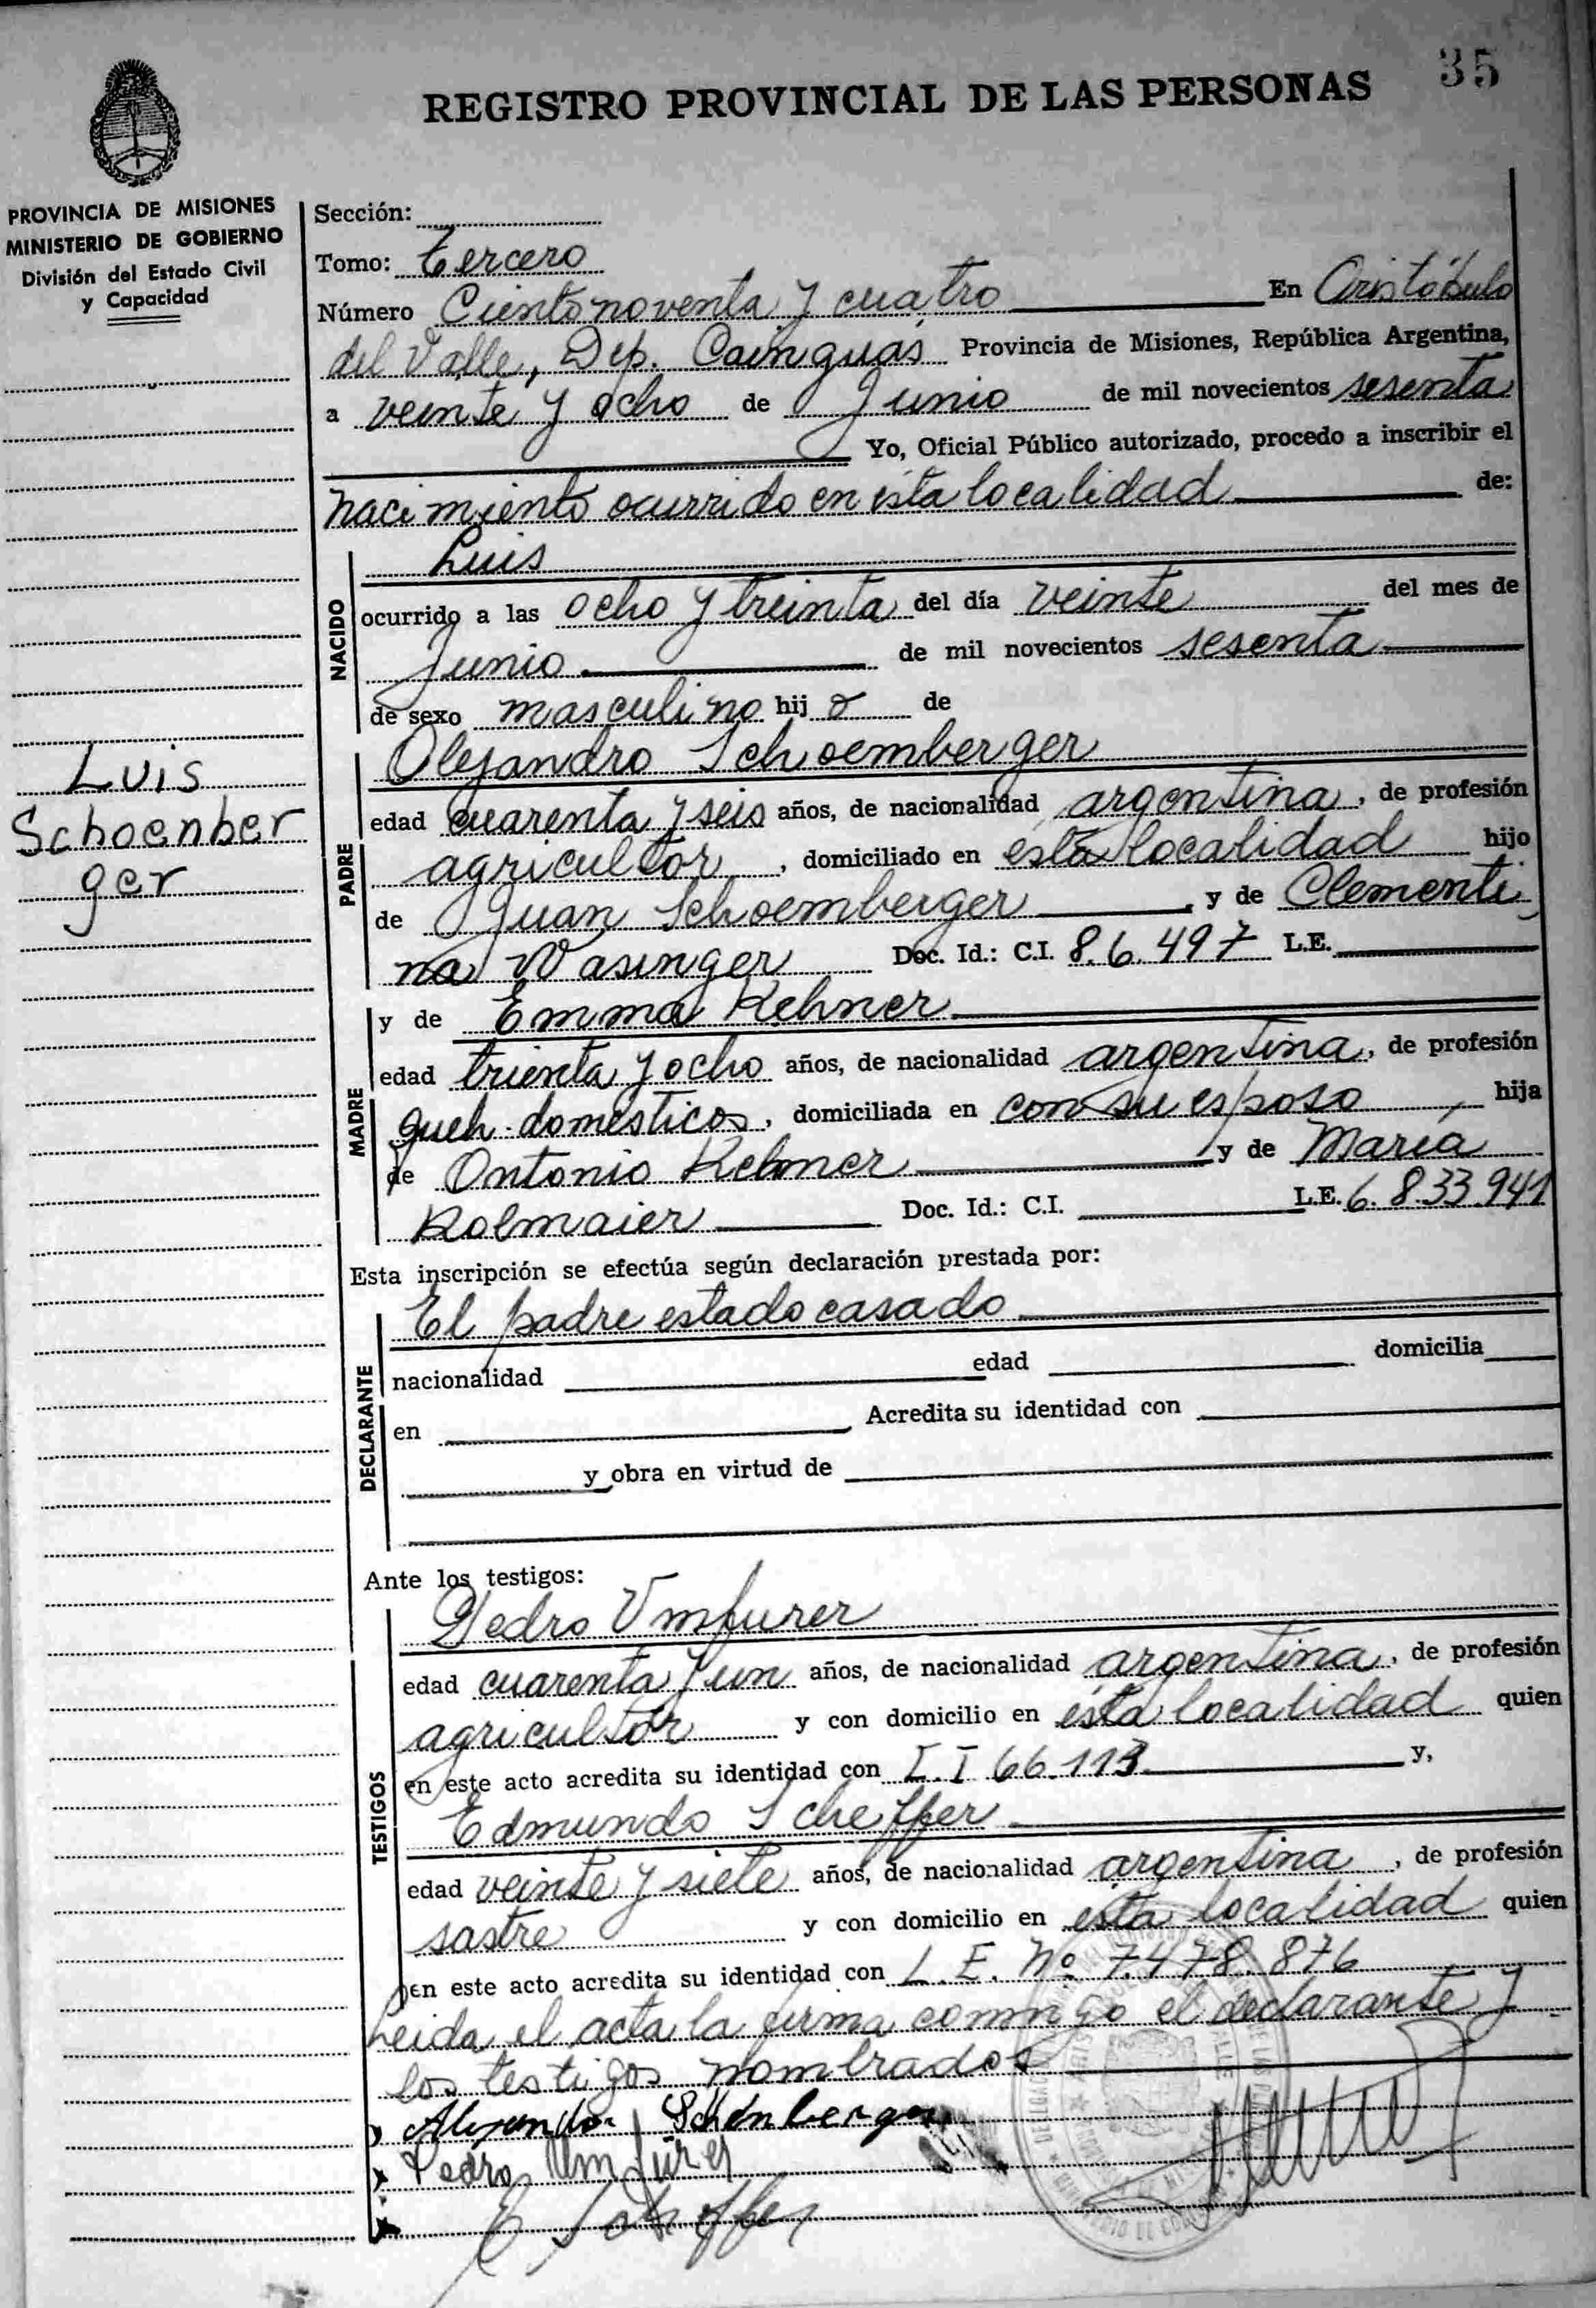 35
REGISTRO PROVINCIAL DE LAS PERSONAS
PROVINCIA DE MISIONES
MINISTERIO DE GOBIERNO
División del Estado Civil
y Capacidad
Sección:
Tomo: tercero
Número Ciento noventa y cuatro En Aristóbulo
del Valle, Dep. Cainguás Provincia de Misiones, República Argentina,
a veinte y ocho de Junio de mil novecientos sesenta
Yo, Oficial Público autorizado, procedo a inscribir el
nacimiento ocurrido en ésta localidad de:
NACIDO
Luis
ocurrido a las ocho y treinta del día veinte del mes de
Junio de mil novecientos sesenta
de sexo masculino hij o de
Luis
Schoenber
ger
PADRE
Alejandro Schoemberger
edad cuarenta y seis años, de nacionalidad argentina, de profesión
agricultor, domiciliado en ésta localidad hijo
de Juan Schoemberger y de Clementi
na Wasinger Doc. Id.: C.I. 8.6.497 L.E.
MADRE
y de Emma Kehner
edad trienta y ocho años, de nacionalidad argentina, de profesión
queh. domésticos, domiciliada en con su esposo, hija
de Antonio Kehner y de María
Rolmaier Doc. Id.: C.I. L.E. 6.833.941
Esta inscripción se efectúa según declaración prestada por:
DECLARANTE
El padre estado casado
nacionalidad edad domicilia
en Acredita su identidad con
y obra en virtud de
Ante los testigos:
TESTIGOS
Pedro Umfurer
edad cuarenta y un años, de nacionalidad argentina, de profesión
agricultor y con domicilio en ésta localidad quien
en este acto acredita su identidad con C.I 66.113 y,
Edmundo Scheffer
edad veinte y siete años, de nacionalidad argentina, de profesión
sastre y con domicilio en ésta localidad quien
en este acto acredita su identidad con L.E. Nº 7.478.876
Leida el acta la firma conmigo el declarante y
los testigos nombrados
Schönberger
Pedro Umfürer
E Scheffer